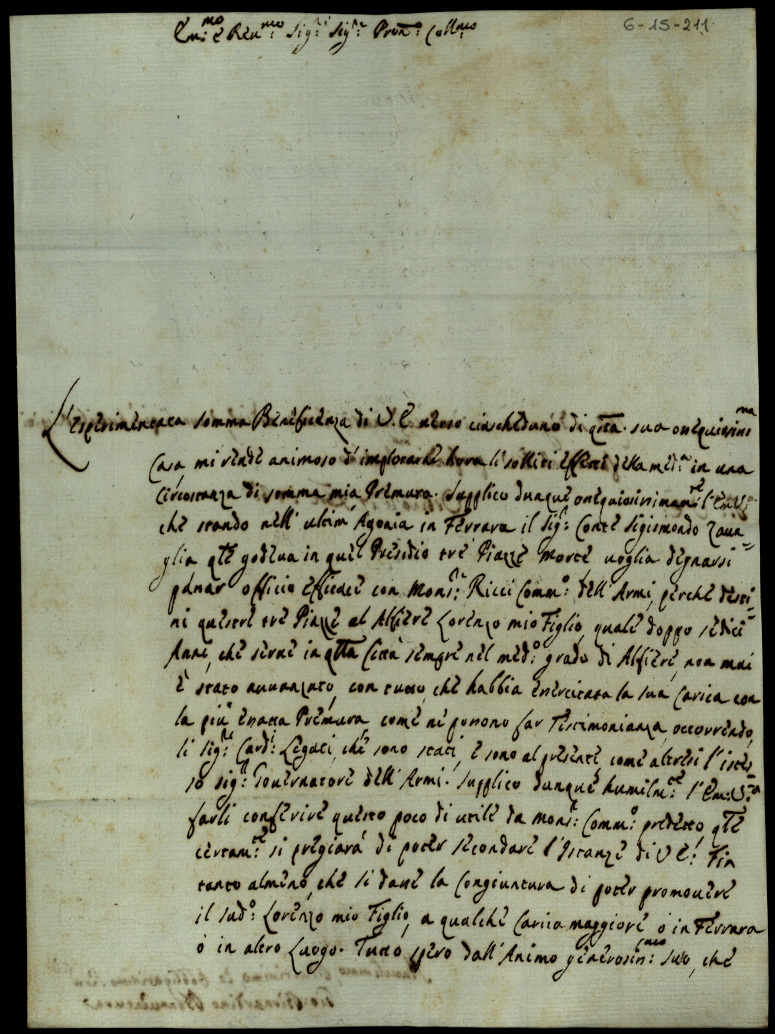 6-15-211
Em:mo e Reu:mo Sig:r Sig:r Pron: Coll:mo
L'esperimentata somma Beneficenza di V.E uerso ciascheduno di qta. sua ossequiosiss:ma
Casa, mi rende animoso d'implorarne hora li soliti effetti della med:a in una
Circostanza di somma mia Premura. Supplico dunque ossequiosissimam:te l'Em:V:a
che stando nell'ultim'Agonia in Ferrara il Sig:r Conte Sigismondo Zaua=
glia qle godeua in quel Presidio tre Piazze morte uoglia degnarsi
passar officio efficace con Mons:r Ricci Comm:o dell'Armi, perche desti=
ni queste tre Piazze al Alfiere Lorenzo mio Figlio, quale doppo sedici
Anni, che serue in qtta Città sempre nel med:o grado di Alfiere, non mai
è stato auuanzato, con tutto, che habbia essercitata la sua Carica con
la più esatta Premura come ne possono far Testimonianza, occorrendo,
li Sig:ri Card:li Legati, che sono stati, e sono al presente come altresi l'istes=
so Sig:r Gouernatore dell'Armi. Supplico dunque humilm:te l'Em:V:a
farli conferire questo poco di utile da Mons:r Comm:o predetto, qle
certam:te si pregiarà di poter secondare l'Istanze di V E: Fin
tanto almeno, che si dasse la Congiuntura di poter promouere
il sud:o Lorenzo mio Figlio, a qualche Carica maggiore ò in Ferrara
ò in altro Luogo. Tutto spero dall'Animo generosiss:mo suo, che